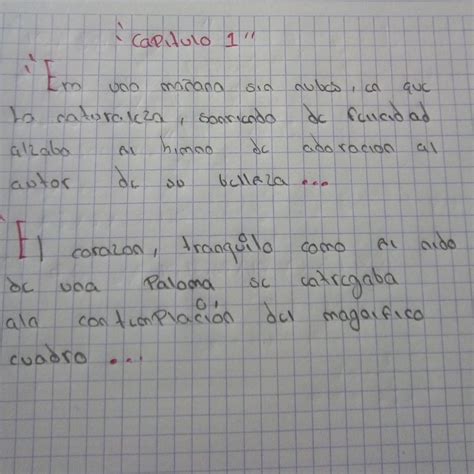 "Capitulo 1"
"En una mañana sin nubes, en que
la naturaleza, sonriendo de felicidad
alzaba el himno de adoracion al
autor de su belleza ...
El corazon, tranqüilo como el nido
de una Paloma se entregaba
ala contemplación del magnifico
cuadro ...